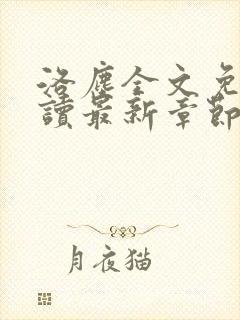 洛塵全文免
讀最新章節
月夜猫